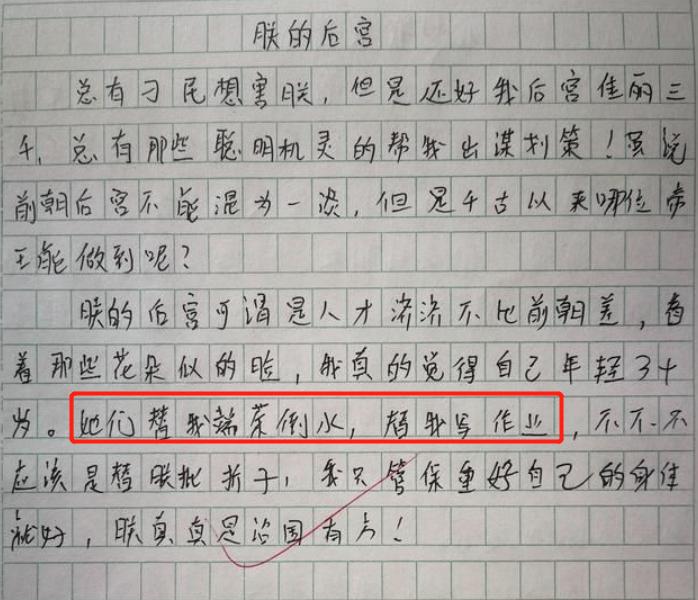 朕的后宫
总有刁民想害朕，但是还好我后宫佳丽三
千，总有那些聪明机灵的帮我出谋划策！虽说
前朝后宫不能混为一谈，但是千古以来哪位帝
王能做到呢？
朕的后宫可谓是人才济济不比前朝差，看
着那些花朵似的脸，我真的觉得自己年轻3十
岁。她们替我端茶倒水，替我写作业，不不不
应该是替朕批折子，我只管保重好自己的身体
就好，朕真真是治国有方！